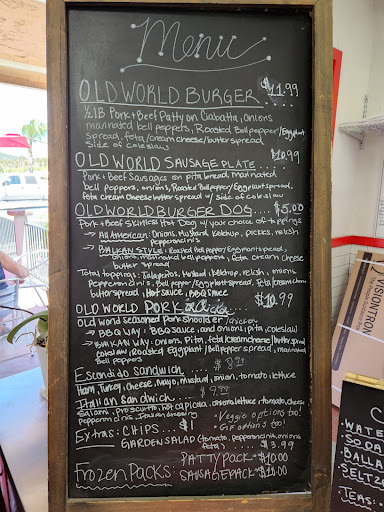 Menu
OLD WORLD BURGER... $11.99
1/2 lb Pork + Beef Patty on Ciabatta, onions
marinated bell peppers, Roasted Bell pepper/Eggplant
spread, feta/cream cheese/butter spread
side of coleslaw
OLD WORLD SAUSAGE PLATE... $10.99
Pork + Beef Sausages on pita bread, marinated
bell peppers, onions, Roasted Bell pepper/Eggplant spread,
feta cream cheese butter spread w/ side of coleslaw
OLD WORLD BURGER DOG.... $5.00
Pork + Beef Skinless Hot Dog w/ your choice of toppings
→ All American: Onions, Mustard, Ketchup, pickles, relish
pepperoncinis
→ BALKAN STYLE: Roasted Bell pepper/Eggplant spread,
onions, marinated bell peppers, feta cream cheese
butter spread
Total toppings: Jalapeños, Mustard, Ketchup, relish, onions
Pepperoncinis, Bell pepper/Eggplant spread, feta/cream cheese
butter spread, Hot sauce, BBQ sauce
OLD WORLD PORK $10.99
old world seasoned Pork shoulder/chicken
→ BBQ WAY: BBQ sauce, and onions, pita, coleslaw
→ BALKAN WAY: onions, Pita, feta/cream cheese/butter spread
coleslaw, Roasted Eggplant/Bell pepper spread, marinated
Bell peppers
Escondido Sandwich.... $8.99
Ham, Turkey, Cheese, Mayo, Mustard, onion, tomato, lettuce
Italian Sandwich.... $9.99
Salami, Prosciutto, hot capicola, onions, lettuce, tomato, cheese
pepperoncinis, Italian dressing
• Veggie options too!
• GF options too!
Extras: CHIPS.... $1
GARDEN SALAD (tomato, pepperoncinis, onions
feta) .... $3.99
FROZEN PACKS: PATTY PACK → $10.00
SAUSAGE PACK → $10.00
VISIONTION
SODA
BALLA
SELTZ
TEAS: